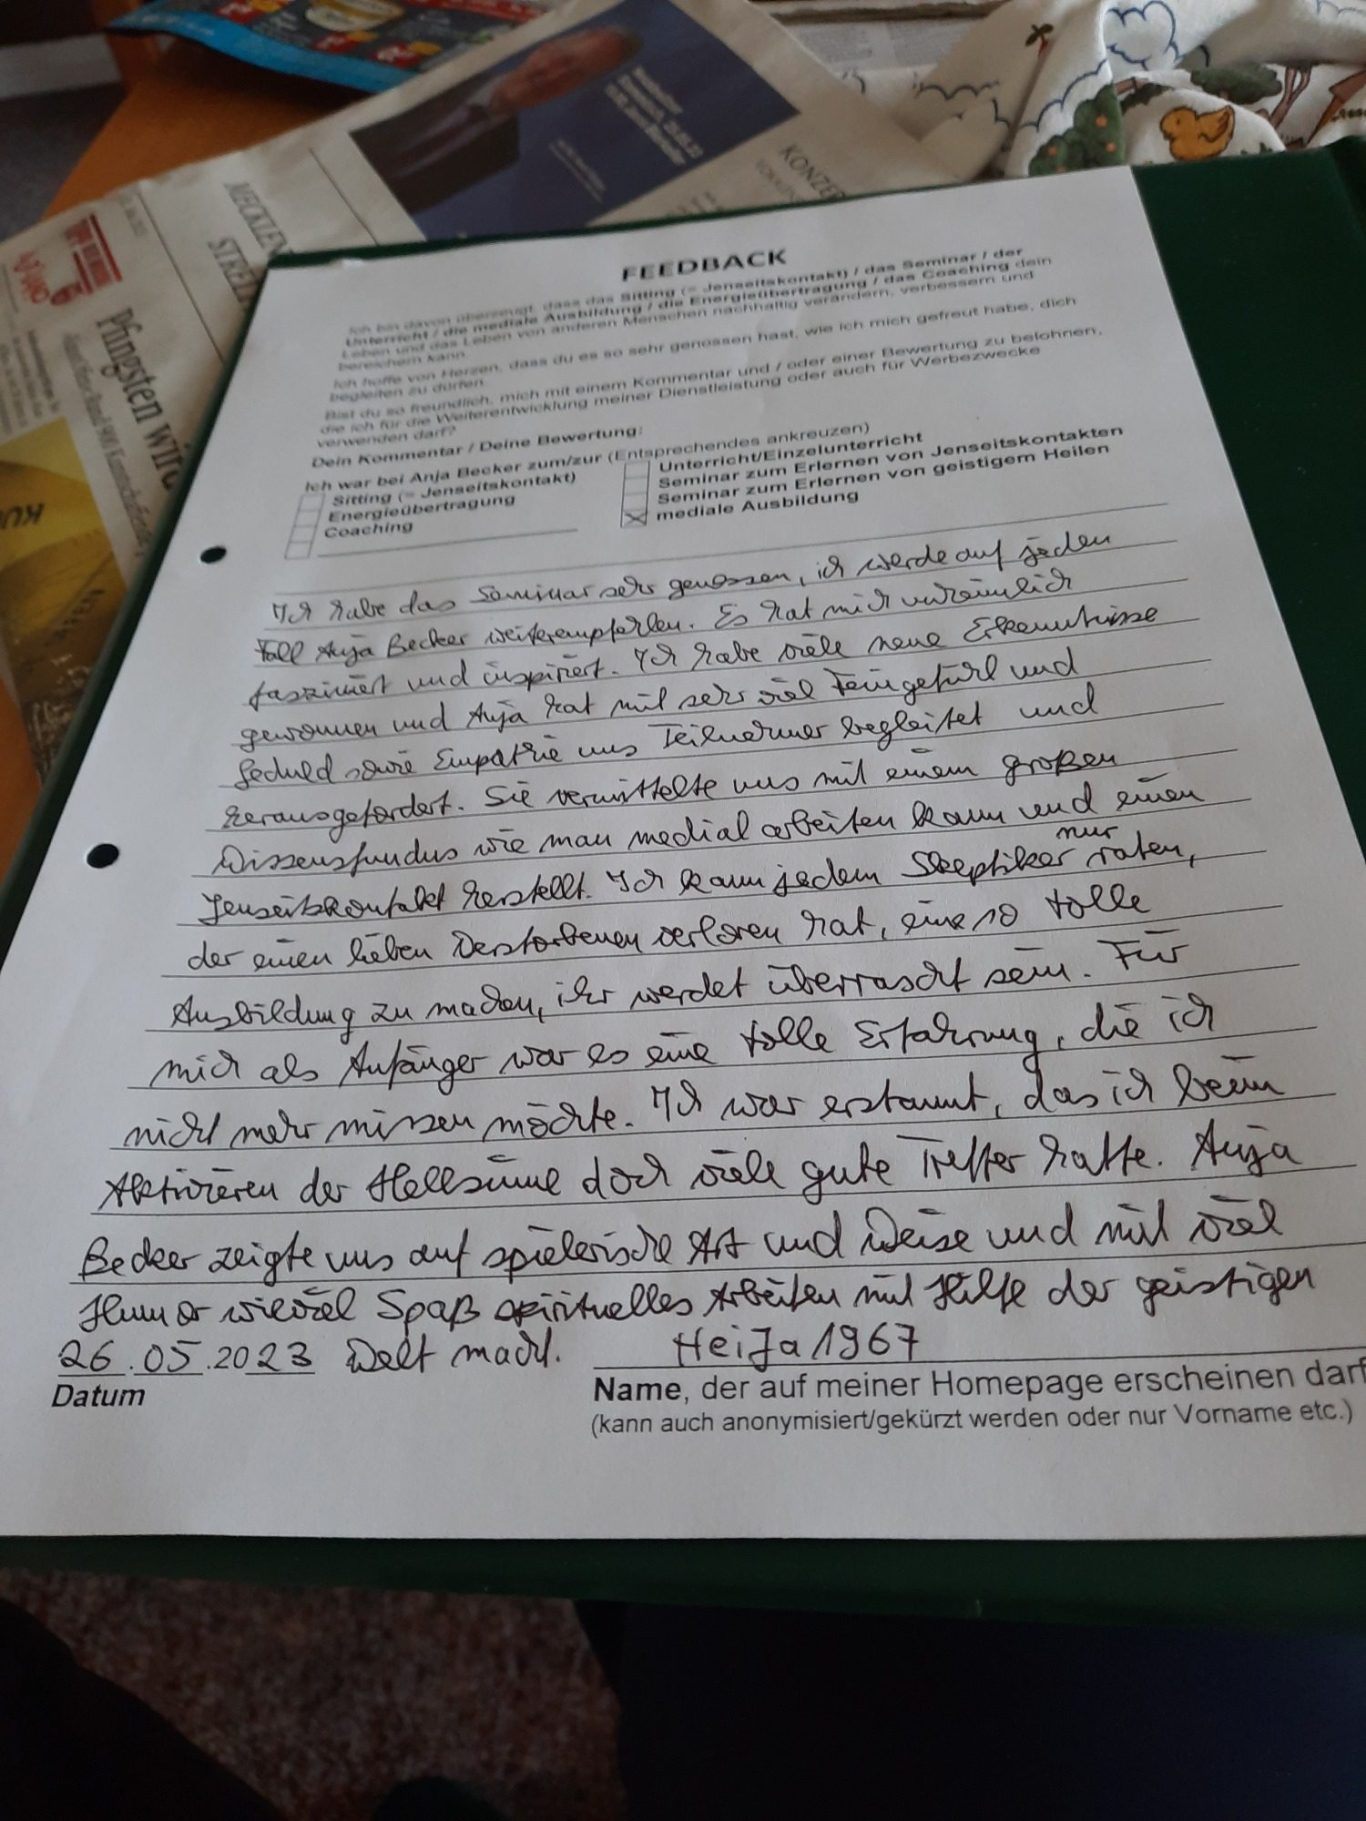 KONZER
MECKLEN
STREL
Pfingsten wird
FEEDBACK
Ich bin davon überzeugt, dass das Sitting (= Jenseitskontakt) / das Seminar / der
Unterricht / die mediale Ausbildung / die Energieübertragung / das Coaching dein
Leben und das Leben von anderen Menschen nachhaltig verändern, verbessern und
bereichern kann.
Ich hoffe von Herzen, dass du es so sehr genossen hast, wie ich mich gefreut habe, dich
begleiten zu dürfen.
Bist du so freundlich, mich mit einem Kommentar und / oder einer Bewertung zu belohnen,
die ich für die Weiterentwicklung meiner Dienstleistung oder auch für Werbezwecke
verwenden darf?
Dein Kommentar / Deine Bewertung:
Ich war bei Anja Becker zum/zur (Entsprechendes ankreuzen)
Sitting (= Jenseitskontakt)
Energieübertragung
Coaching
Unterricht/Einzelunterricht
Seminar zum Erlernen von Jenseitskontakten
Seminar zum Erlernen von geistigem Heilen
mediale Ausbildung
Ich habe das Seminar sehr genossen, ich werde auf jeden
Fall Anja Becker weiterempfehlen. Es hat mich unheimlich
fasziniert und inspiriert. Ich habe viele neue Erkenntnisse
gewonnen und Anja hat mit sehr viel Feingefühl und
Geduld sowie Empathie uns Teilnehmer begleitet und
herausgefordert. Sie vermittelte uns mit einem großen
Wissensfundus wie man medial arbeiten kann und einen
Jenseitskontakt herstellt. Ich kann jedem Skeptiker nur raten,
der einen lieben Verstorbenen verloren hat, eine so tolle
Ausbildung zu machen, ihr werdet überrascht sein. Für
mich als Anfänger war es eine tolle Erfahrung, die ich
nicht mehr missen möchte. Ich war erstaunt, das ich beim
Aktivieren der Hellsinne doch viele gute Treffer hatte. Anja
Becker zeigte uns auf spielerische Art und Weise und mit viel
Humor wieviel Spaß spirituelles Arbeiten mit Hilfe der geistigen
26.05.2023 Welt macht. HeiJa1967
Datum
Name, der auf meiner Homepage erscheinen darf
(kann auch anonymisiert/gekürzt werden oder nur Vorname etc.)